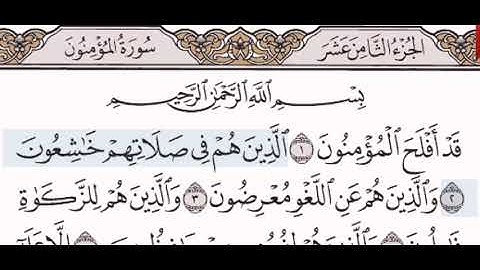 الجُزْءُ الثَّامِنَ عَشَرَ
سُورَةُ المُؤْمِنُونَ
بِسْمِ ٱللَّهِ ٱلرَّحْمَٰنِ ٱلرَّحِيمِ
قَدْ أَفْلَحَ ٱلْمُؤْمِنُونَ ١ ٱلَّذِينَ هُمْ فِي صَلَاتِهِمْ خَٰشِعُونَ
٢ وَٱلَّذِينَ هُمْ عَنِ ٱللَّغْوِ مُعْرِضُونَ ٣ وَٱلَّذِينَ هُمْ لِلزَّكَوٰةِ